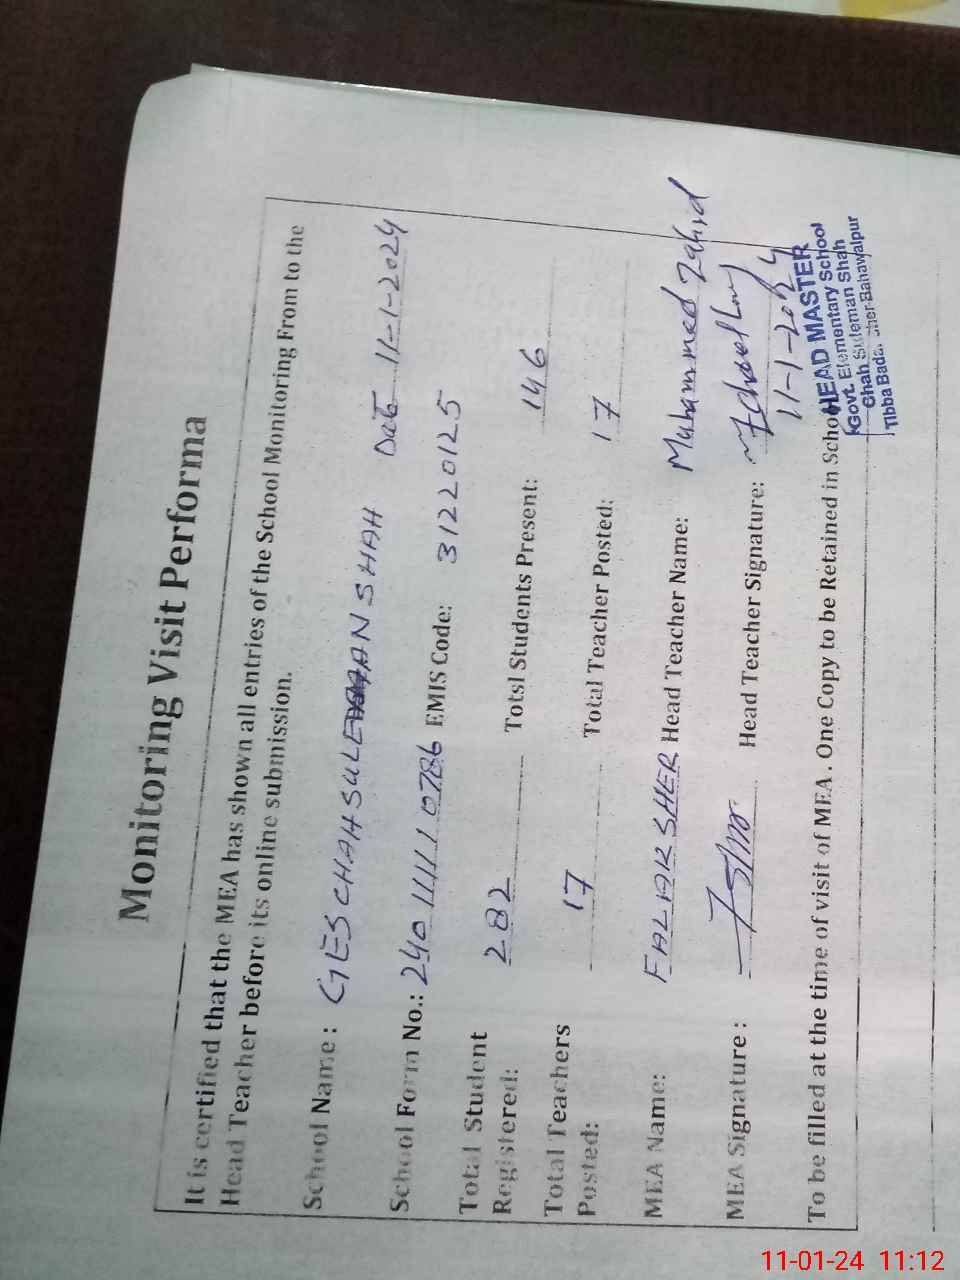 Monitoring Visit Performa
It is certified that the MEA has shown all entries of the School Monitoring From to the
Head Teacher before its online submission.
School Name : GES CHAH SULEMAN SHAH Date 11-1-2024
School Form No.: 24011111 0786 EMIS Code: 31220125
Total Student Registered: 282 Totsl Students Present: 146
Total Teachers Posted: 17 Total Teacher Posted: 17
MEA Name: FALAK SHER Head Teacher Name: Muhammed Zahid
MEA Signature : Head Teacher Signature:
11-1-2024
To be filled at the time of visit of MEA . One Copy to be Retained in Scho
HEAD MASTER
Govt. Elementary School
Chah Suleman Shah
Tibba Bada, Sher Bahawalpur
11-01-24 11:12